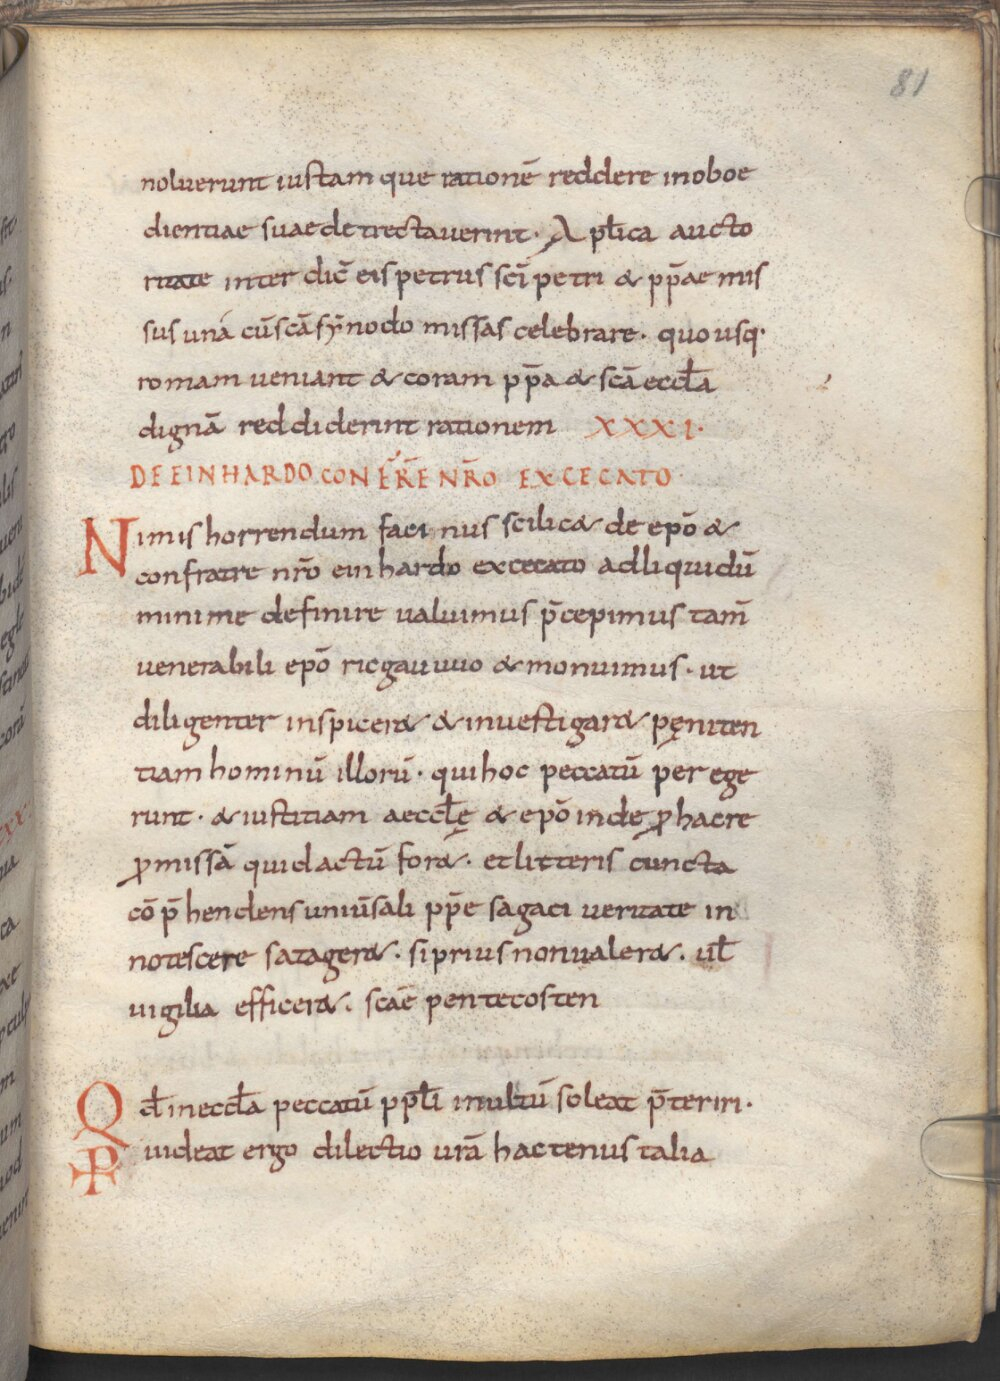 81
noluerunt iustam que rationē reddere inoboe
dientiae suae detrectauerint· Apl̄ica aucto
ritate inter dic̄ eis petrus sc̄i petri & pp̄ae mis
sus unā cū sc̄a synodo missas celebrare· quousq·
romam ueniant & coram pp̄a & sc̄a eccl̄a
dignā reddiderint rationem XXXI·
DE EINHARDO CONFR̄E NR̄O EXCECATO·
Nimis horrendum facinus scilic& de ep̄o &
confratre nr̄o einhardo excecato adliquidū
minime definire ualuimus p̄cepimus tam̄
uenerabili ep̄o ricgauuuo & monuimus· ut
diligenter inspicer& & inuestigar& pęniten
tiam hominū illorū· qui hoc peccatū perege
runt· & iustitiam aeccl̄ę & ep̄o inde ꝓ hac re
ꝓmissā quid actū for&· et litteris cuncta
cōp̄hendens uniūsali pp̄e sagaci ueritate in
notescere satager&· si prius non ualer&· ul̄
uigilia efficer&· sc̄ae pentecosten
Qd̄ in eccl̄a peccatū ppl̄i inultū soleat p̄teriri·
uideat ergo dilectio ur̄a hactenus talia